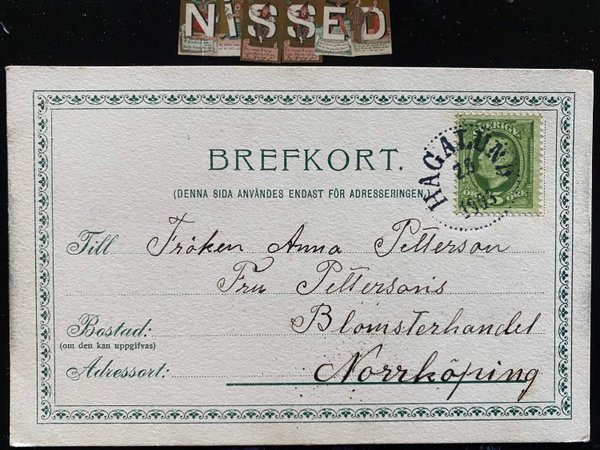 NISSED
BREFKORT.
(DENNA SIDA ANVÄNDES ENDAST FÖR ADRESSERINGEN
SVERIGE
HAGALUND
1903
Till Fröken Anna Petterson
Fru Pettersons
Bostad: Blomsterhandel
(om den kan uppgifvas)
Adressort: Norrköping